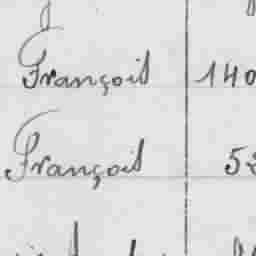 François 140
François 52